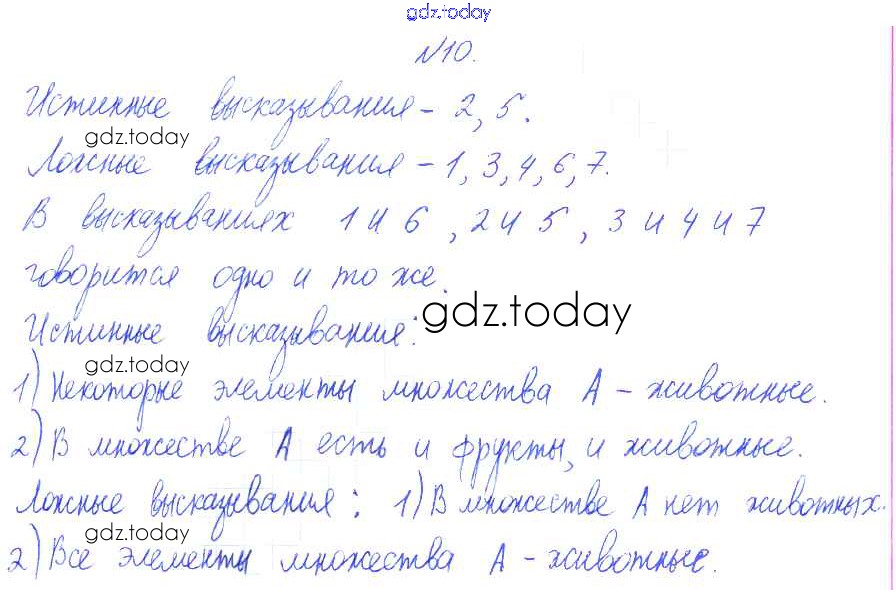 gdz.today
№10.
Истинные высказывания – 2, 5.
gdz.today
Ложные высказывания – 1, 3, 4, 6, 7.
В высказываниях 1 и 6, 2 и 5, 3 и 4 и 7
говорится одно и то же.
gdz.today
Истинные высказывания:
gdz.today
1) Некоторые элементы множества А – животные.
2) В множестве А есть и фрукты, и животные.
Ложные высказывания: 1) В множестве А нет животных.
gdz.today
2) Все элементы множества А – животные.